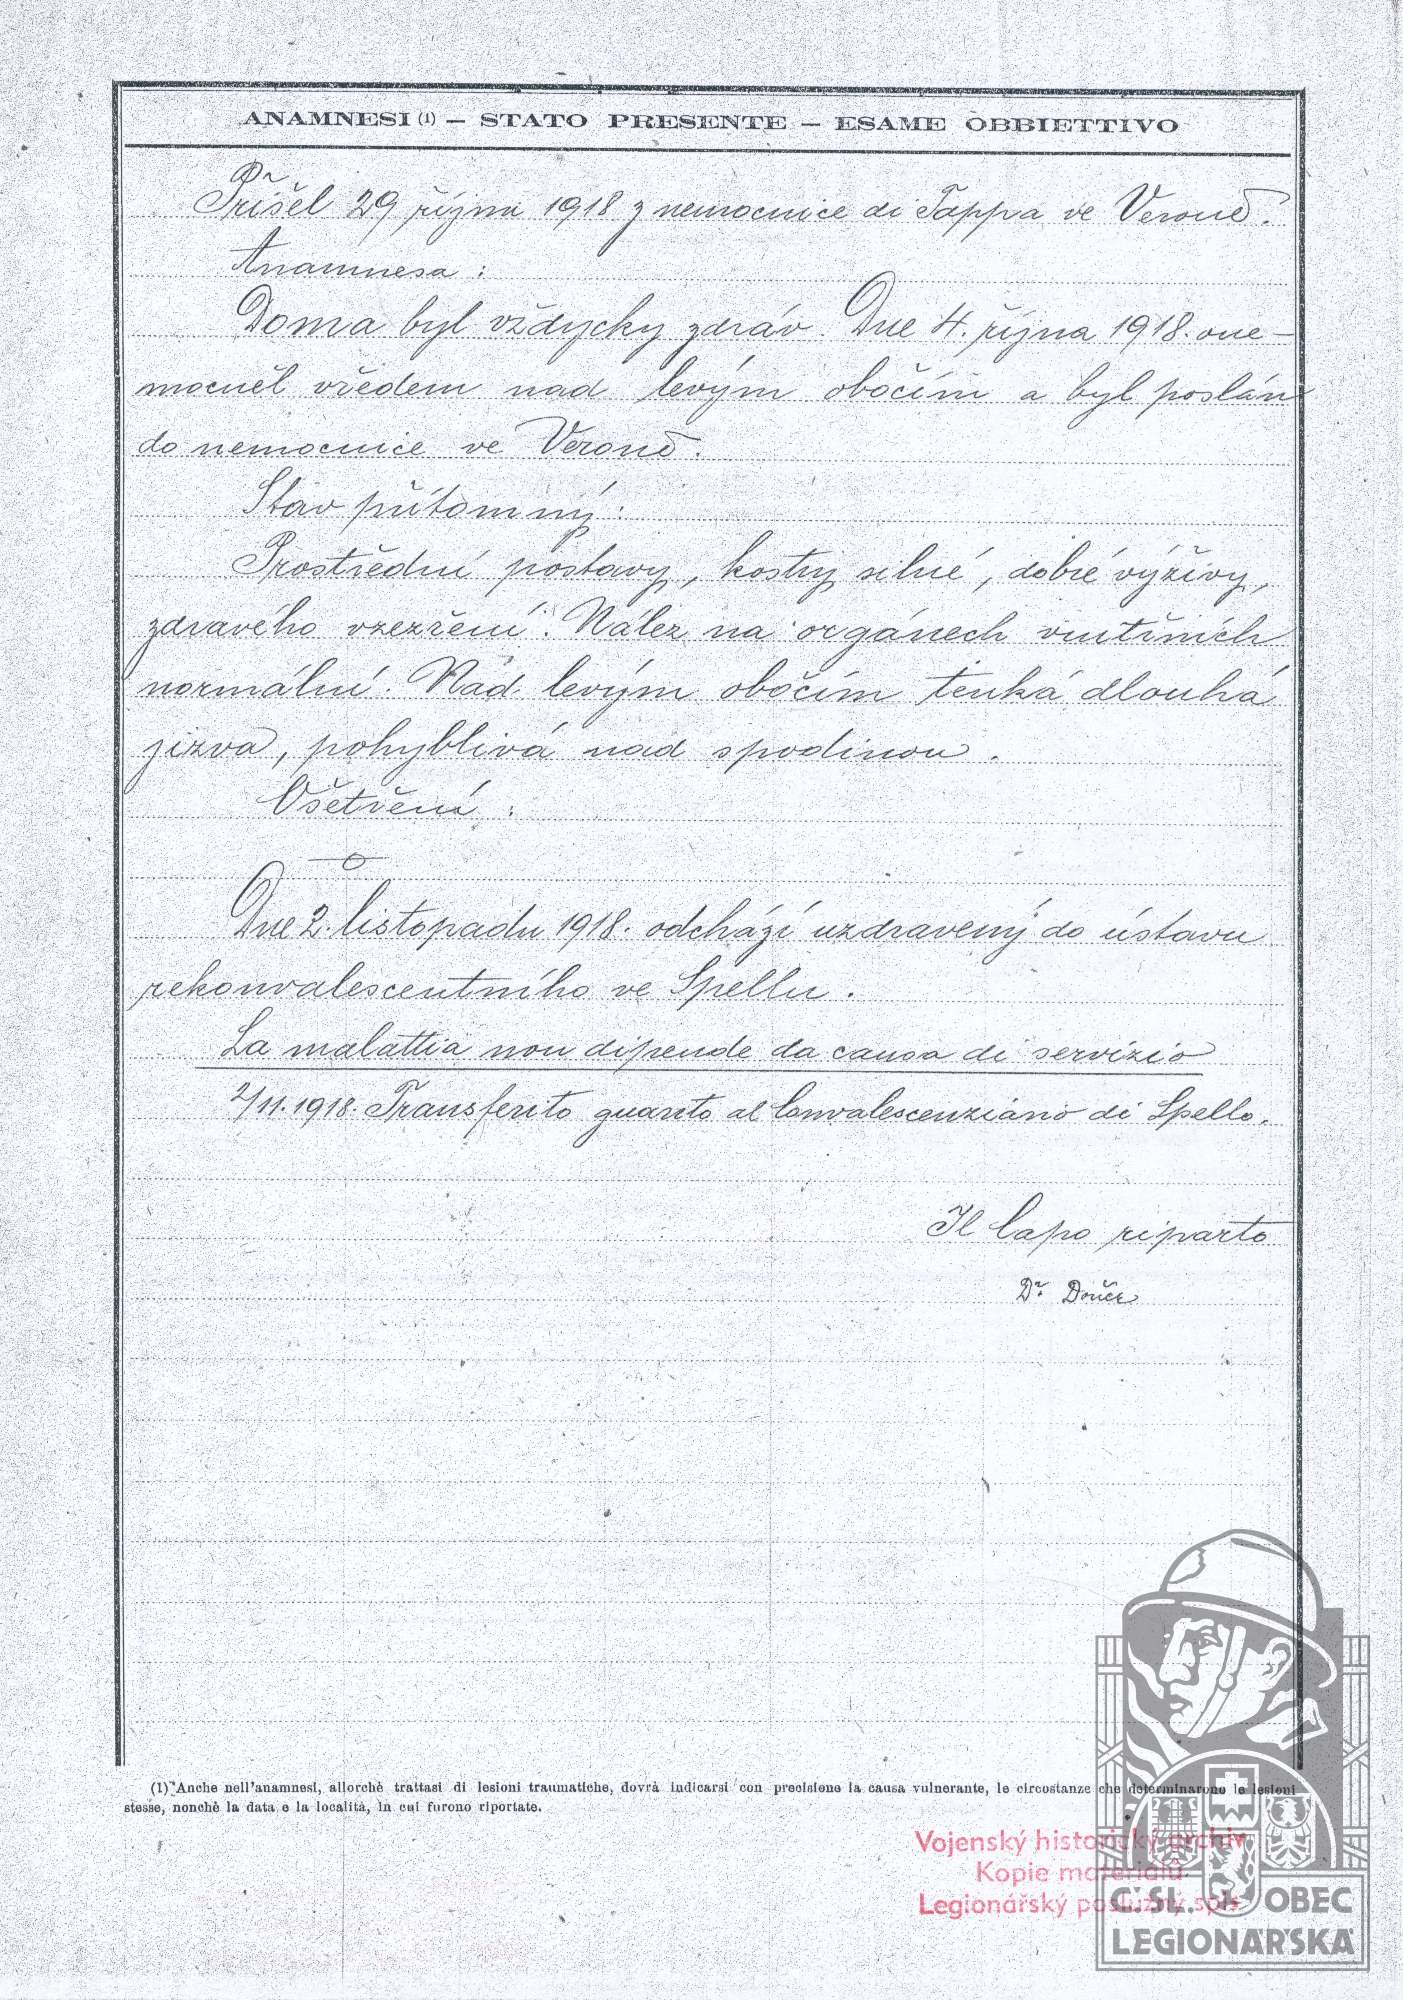 ANAMNESI (1) — STATO PRESENTE — ESAME OBBIETTIVO
Přišel 29 října 1918 z nemocnice di Tappa ve Veroně.
Anamnesa :
Doma byl vždycky zdráv. Dne 4. října 1918. one-
mocněl vředem nad levým obočím a byl poslán
do nemocnice ve Veroně.
Stav přítomný :
Prostřední postavy, kostry silné, dobré výživy,
zdravého vzezření. Nález na orgánech vnitřních
normální. Nad levým obočím tenká dlouhá
jizva, pohyblivá nad spodinou.
Ošetření :
Dne 2. listopadu 1918. odchází uzdravený do ústavu
rekonvalescentního ve Spellu.
La malattia non dipende da causa di servizio
2/11.1918. Transferito guarito al Convalescenziario di Spello.
Il Capo riparto
Dr.
(1) Anche nell'anamnesi, allorchè trattasi di lesioni traumatiche, dovrà indicarsi con precisione la causa vulnerante, le circostanze che determinarono le lesioni
stesse, nonchè la data e la località, in cui furono riportate.
Vojenský historický archiv
Kopie materiálů
Legionářský poslužný spis
Č.SL. OBEC
LEGIONÁŘSKÁ